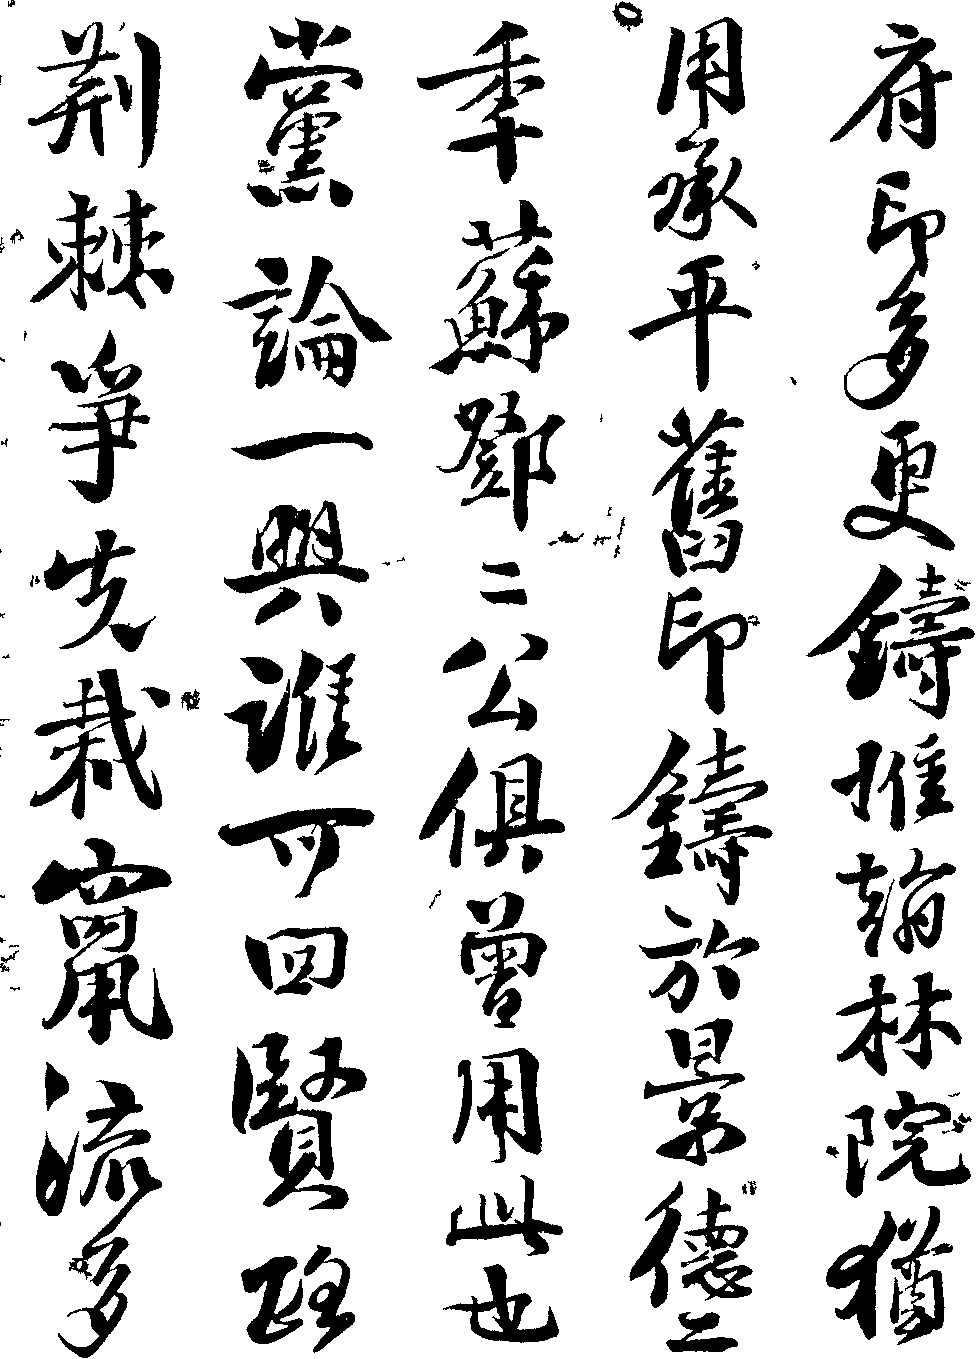 府印多更鑄惟翰林院猶
用承平舊印鑄於景德二
季蘇鄧二公俱曾用此也
黨論一興誰可回賢路
荆棘爭先栽竄流多